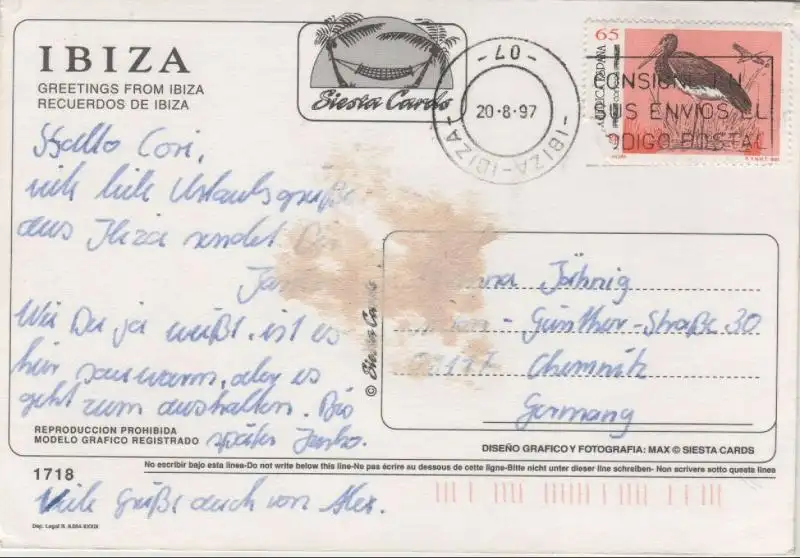 IBIZA
GREETINGS FROM IBIZA
RECUERDOS DE IBIZA
Siesta Cards
-07-
20-8-97
-IBIZA-IBIZA-
65
ESPAÑA
CORREOS
CONSIGNE EN
SUS ENVIOS EL
CODIGO POSTAL
Hallo Cori,
viele liebe Urlaubsgrüße
aus Ibiza sendet Dir
Wie Du ja weißt, ist es
hier sauwarm, aber es
geht zum aushalten. Bis
später Jambo.
© Siesta Cards
Jähnig
- Günther-Straße 30
Chemnitz
Germany
REPRODUCCION PROHIBIDA
MODELO GRAFICO REGISTRADO
DISEÑO GRAFICO Y FOTOGRAFIA: MAX © SIESTA CARDS
1718
No escribir bajo esta linea-Do not write below this line-Ne pas écrire au dessous de cette ligne-Bitte nicht unter dieser line schreiben- Non scrivere sotto questa linea
Viele Grüße auch von Alex.